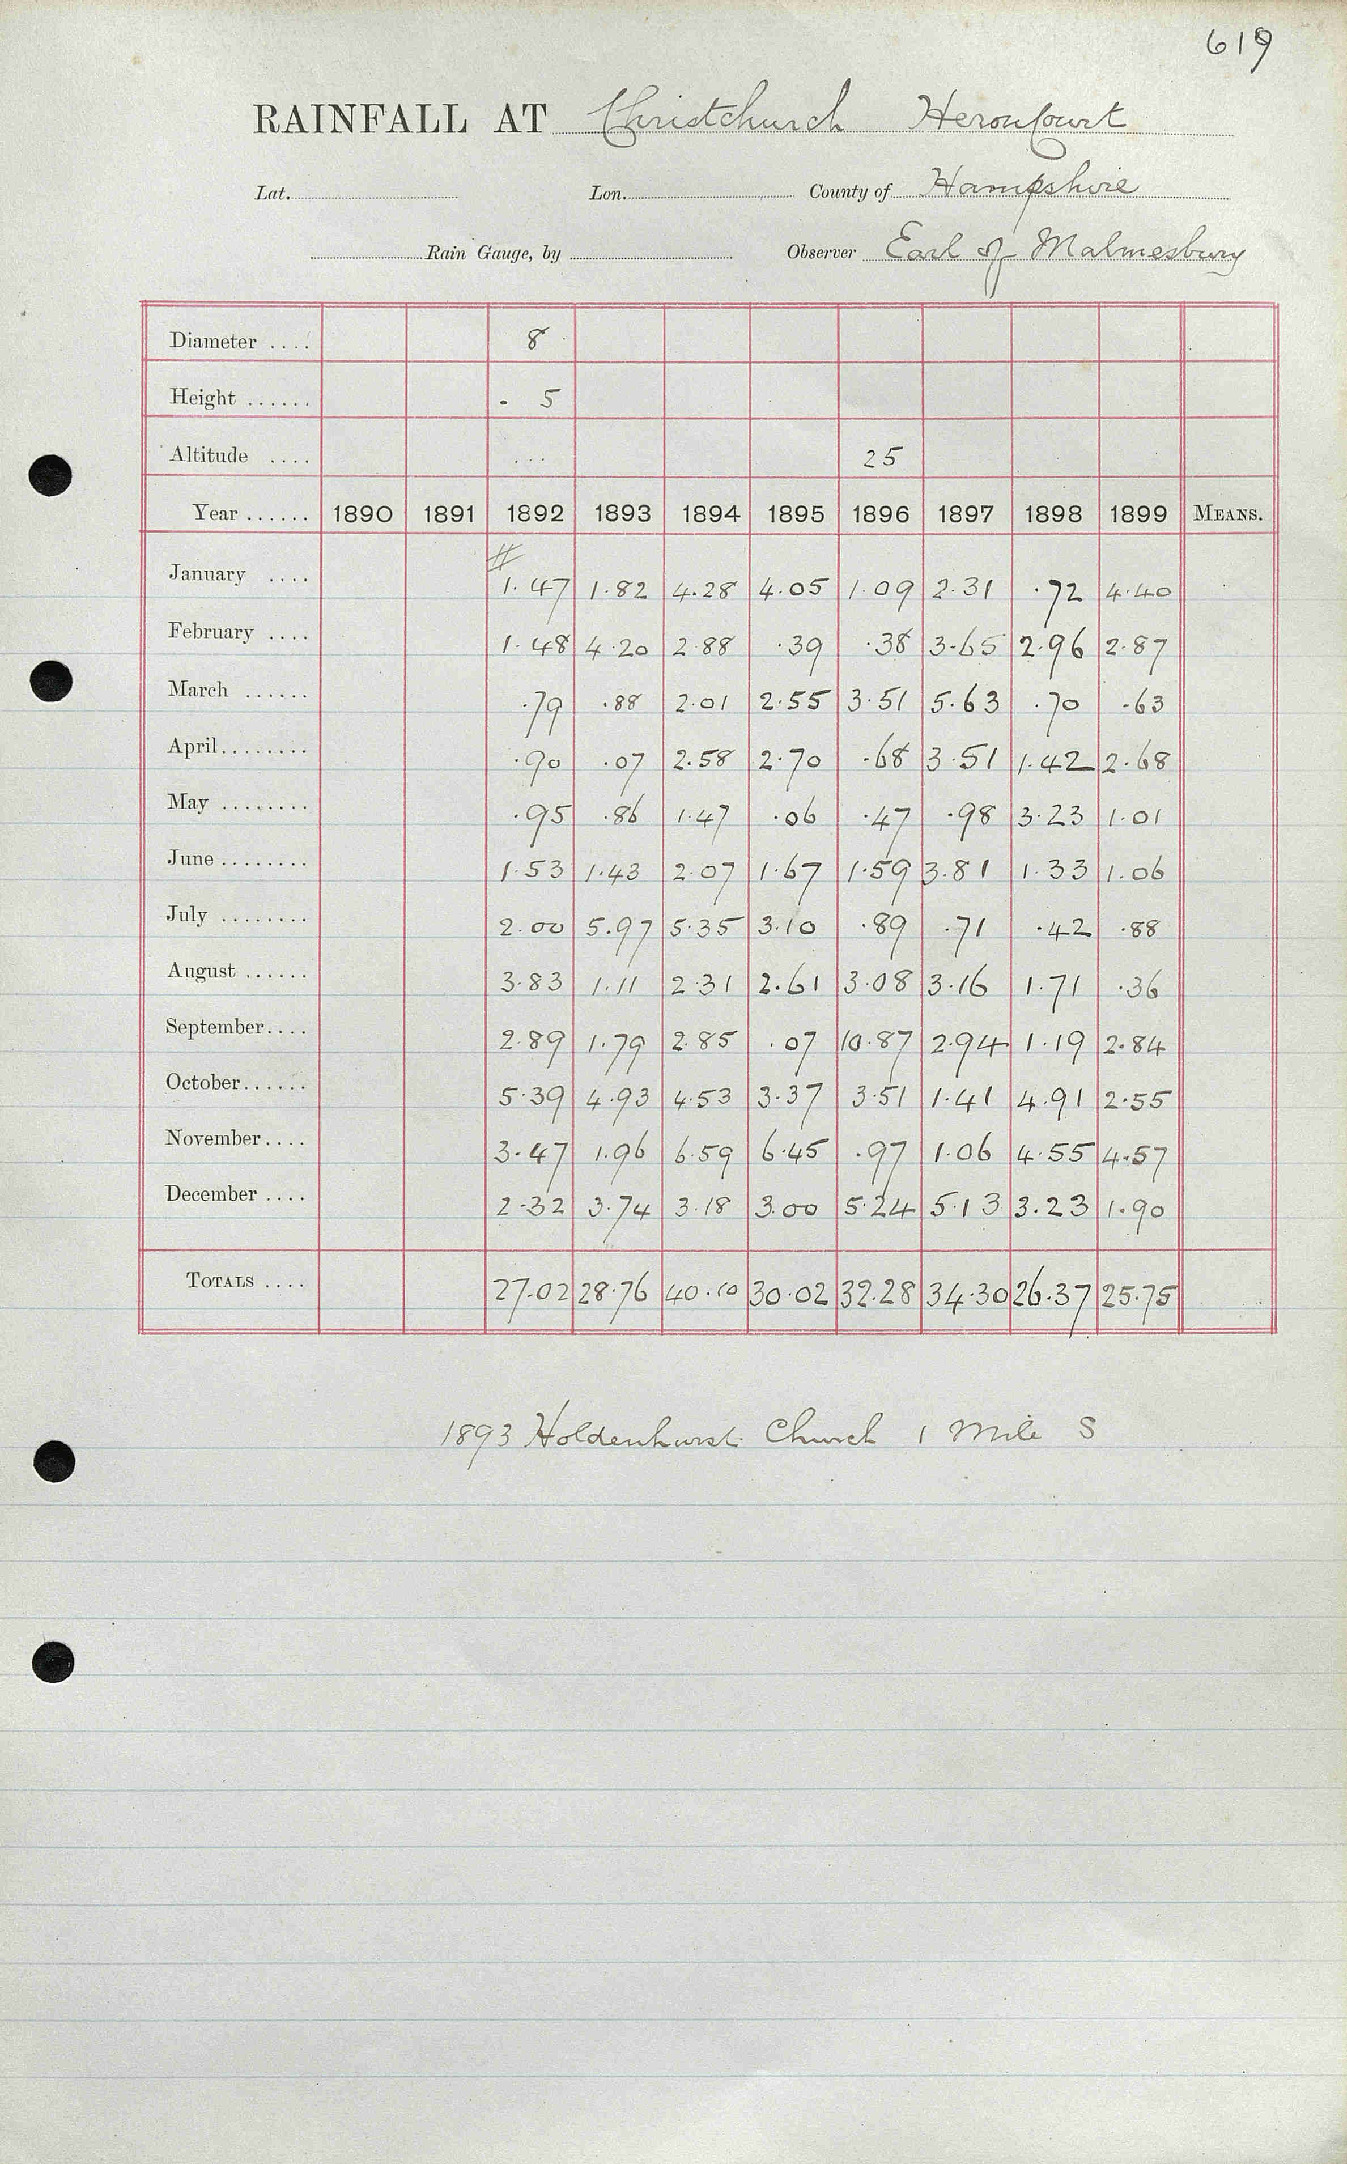 619
RAINFALL AT Christchurch Heron Court
Lat. Lon. County of Hampshire
Rain Gauge, by Observer Earl of Malmesbury
Diameter .... 8
Height ...... - 5
Altitude .... ... 25
Year ...... 1890 1891 1892 1893 1894 1895 1896 1897 1898 1899 MEANS.
#
January .... 1.47 1.82 4.28 4.05 1.09 2.31 .72 4.40
February .... 1.48 4.20 2.88 .39 .38 3.65 2.96 2.87
March ...... .79 .88 2.01 2.55 3.51 5.63 .70 .63
April........ .90 .07 2.58 2.70 .68 3.51 1.42 2.68
May ........ .95 .86 1.47 .06 .47 .98 3.23 1.01
June ........ 1.53 1.43 2.07 1.67 1.59 3.81 1.33 1.06
July ........ 2.00 5.97 5.35 3.10 .89 .71 .42 .88
August ...... 3.83 1.11 2.31 2.61 3.08 3.16 1.71 .36
September.... 2.89 1.79 2.85 .07 10.87 2.94 1.19 2.84
October...... 5.39 4.93 4.53 3.37 3.51 1.41 4.91 2.55
November.... 3.47 1.96 6.59 6.45 .97 1.06 4.55 4.57
December .... 2.32 3.74 3.18 3.00 5.24 5.13 3.23 1.90
TOTALS .... 27.02 28.76 40.10 30.02 32.28 34.30 26.37 25.75
1893 Holdenhurst Church 1 Mile S